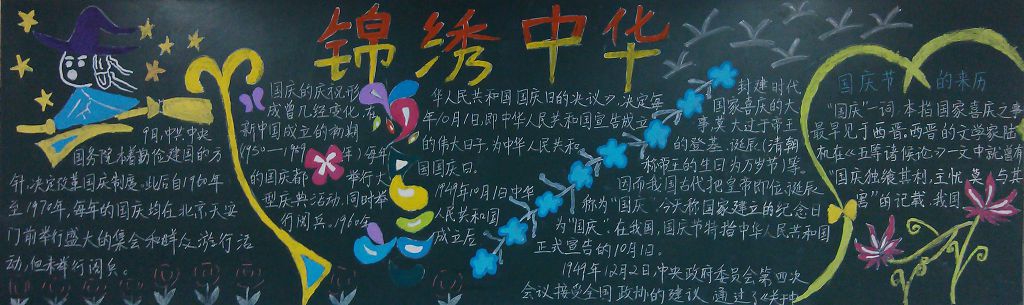 锦绣中华
国庆节的来历
"国庆"一词,本指国家喜庆之事
最早见于西晋。西晋的文学家陆
机在《五等诸侯论》一文中就曾有
"国庆独飨其利,主忧莫与其
害"的记载、我国
封建时代、
国家喜庆的大
事,莫大过于帝王
的登基、诞辰(清朝
称帝王的生日为万岁节)等。
因而我国古代把皇帝即位、诞辰
称为"国庆"。今天称国家建立的纪念日
为"国庆"。在我国,国庆节特指中华人民共和国
正式宣告的10月1日。
1949年12月2日,中央政府委员会第四次
会议接受全国政协的建议,通过了《关于中
华人民共和国国庆日的决议》,决定每
年10月1日,即中华人民共和国宣告成立
的伟大日子,为中华人民共和
国国庆日。
1949年10月1日中华
人民共和国
成立后
国庆的庆祝形
成曾几经变化,在
新中国成立的初期
(1950—1959年)每年
的国庆都举行大
型庆典活动,同时举
行阅兵。1960年
9月,中共中央、
国务院本着勤俭建国的方
针,决定改革国庆制度。此后自1960年
至1970年,每年的国庆均在北京天安
门前举行盛大的集会和群众游行活
动,但未举行阅兵。